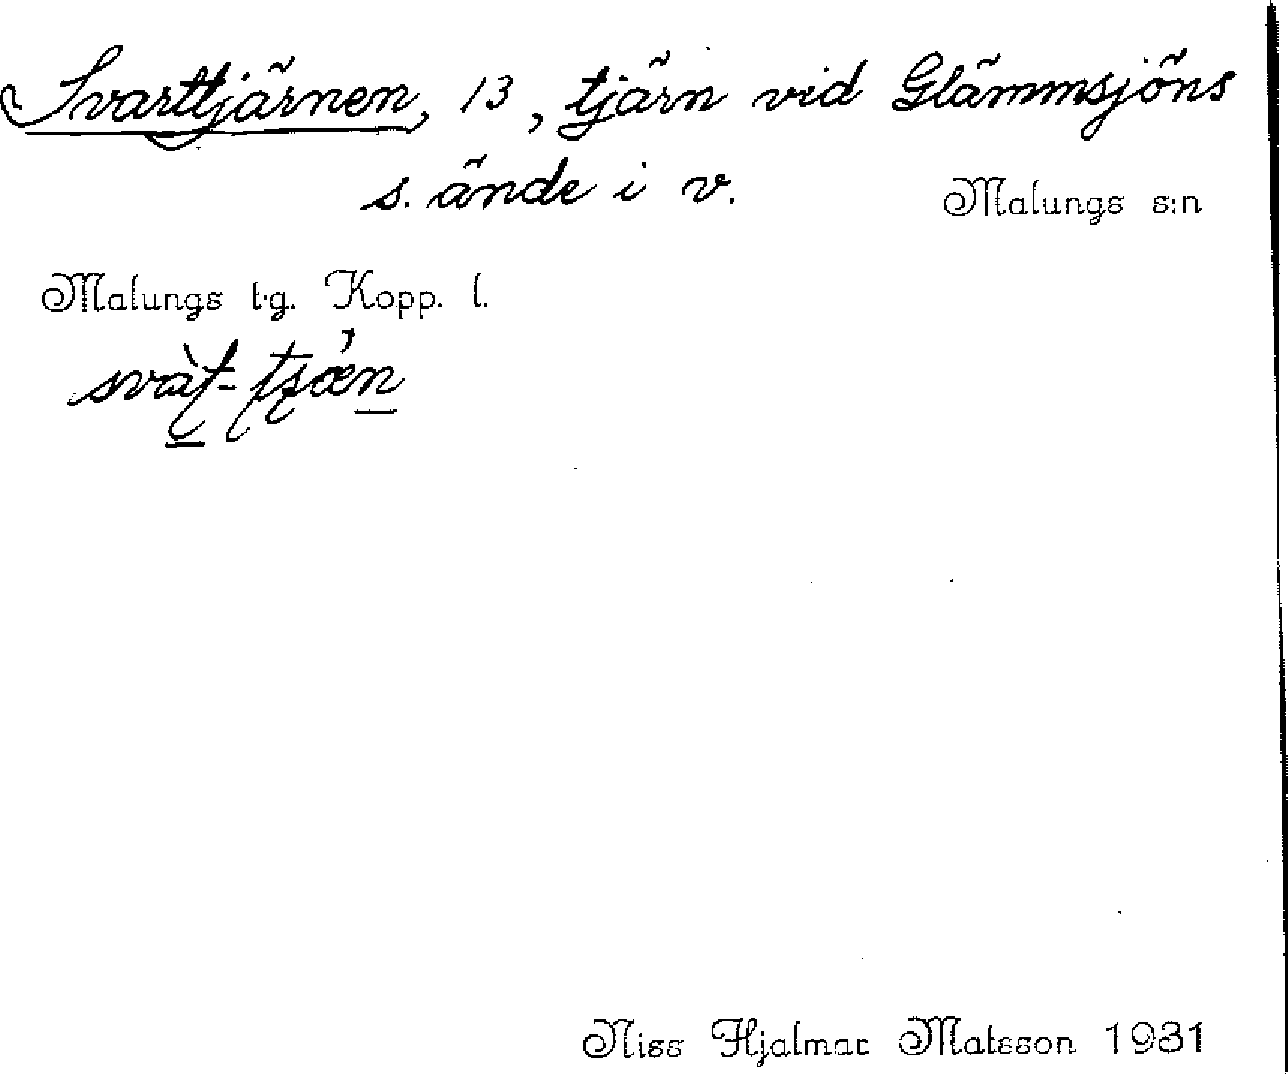 Svarttjärnen, 13, tjärn vid Glämmsjöns
s. ände i v.
Malungs s:n
Malungs t.g. Kopp. l.
Niss Hjalmar Matsson 1931